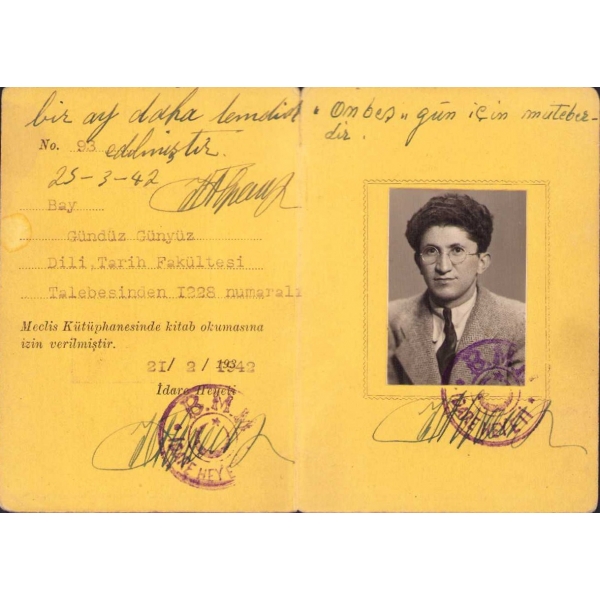 bir ay daha temdid
edilmiştir.
No. 93
25-3-42
Bay
Gündüz Günyüz
Dili,Tarih Fakültesi
Talebesinden I228 numaralı
Meclis Kütüphanesinde kitab okumasına
izin verilmiştir.
21/ 2 / 1942
İdare Heyeti
B.M.
"Onbeş" gün için muteber-
dir.
B.M.
İDARE HEYETİ